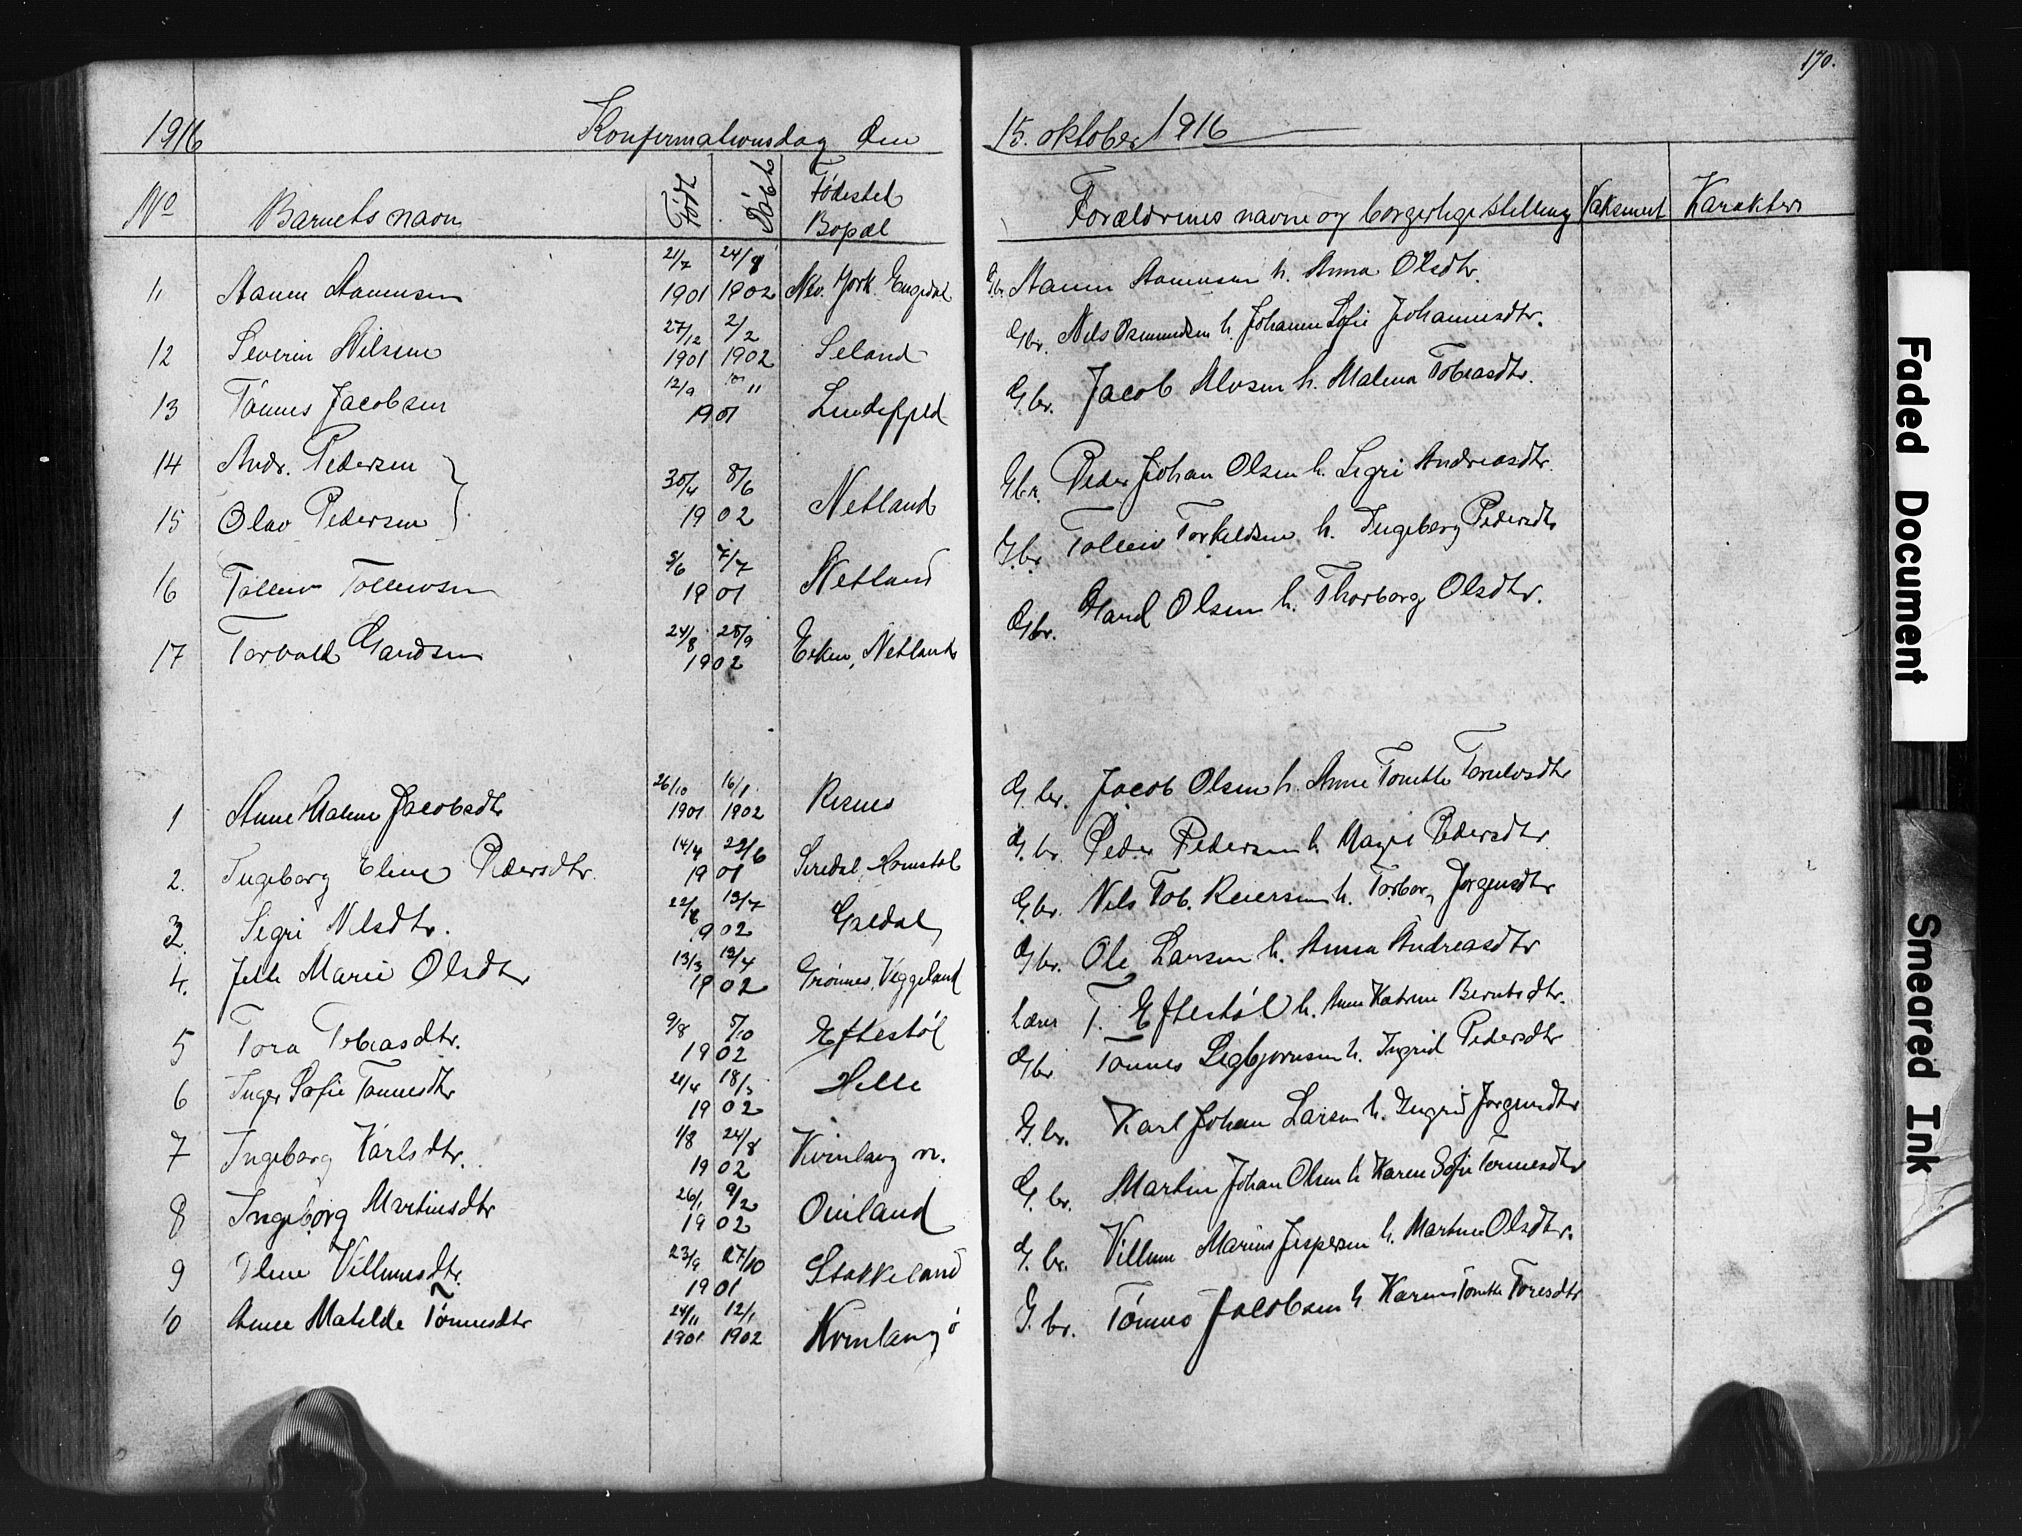 170.
1916 Konfirmationsdag den 15. oktober 1916
No Barnets navn Født Døbt Fødested Bopæl Forældrenes navne og borgerlige stilling Karakter
11 21/7 1901 24/8 1902 New York. Gbr. h. Anna Olsdtr.
12 Severin Nilsen 27/12 1901 2/2 1902 Seland Gbr. Nils Osmundsen h. Johanne Sofie Johannesdtr.
13 Tønnes Jacobsen 12/9 1901 Lindefjeld Gbr. Jacob h. Malena Tobiasdtr.
14 Andr. Pedersen
15 Olav Pedersen 30/4 8/6 1902 Netland Gbr. Peder Johan Olsen h. Sigri Andreasdtr.
16 Tollew Tollewsen 5/6 7/7 1901 Netland Gbr. Tollew Torkeldsen h. Ingeborg Pedersdtr
17 Torvald 24/8 28/9 1902 Netland Gbr. Olsen h. Thorborg Olsdtr.
1 Anne Malene Jacobsdtr 26/10 1901 16/1 1902 Risnes G.br. Jacob Olsen h. Anne Tonette
2. Ingeborg Eline Pedersdtr. 14/4 1901 Siredal, G.br. Peder Pedersen h. Pedersdtr.
3 Sigri Nilsdtr. 13/7 1902 G.br. Nils Tob. Reiersen h. Torbor Jørgensdtr
4. Marie Olsdtr 13/3 13/4 1902 Veggeland Gbr. Ole Larsen h. Anna Andreasdtr
5 Tora Tobiasdtr. 9/8 5/10 1902 Eftestøl Lærer T. Eftestøl h. Anne Katrine Berntsdtr.
6 Inger Sofie Tønnesdtr 21/4 1902 Helle Gbr Tønnes Sigbjørnsen h. Ingrid Pedersdtr
7 Ingeborg Karlsdtr. 1/8 24/8 1902 Kvinlaug n. G.br. Karl Johan Larsen h. Ingrid Jørgensdtr
8 Ingeborg Martinsdtr 26/1 9/2 1902 Omland G.br. Martin Johan Olsen h. Karen Sofie Tønnesdtr
9 Villumsdtr. 23/9 27/10 1901 Stakkeland G.br. Villum Marius Jespersen h. Martine Olsdtr.
10 Anne Matilde Tønnesdtr 24/11 1901 12/1 1902 Kvinlaug ø G.br. Tønnes Jacobsen h. Karen Tonette Toresdtr
Faded Document
Smeared Ink